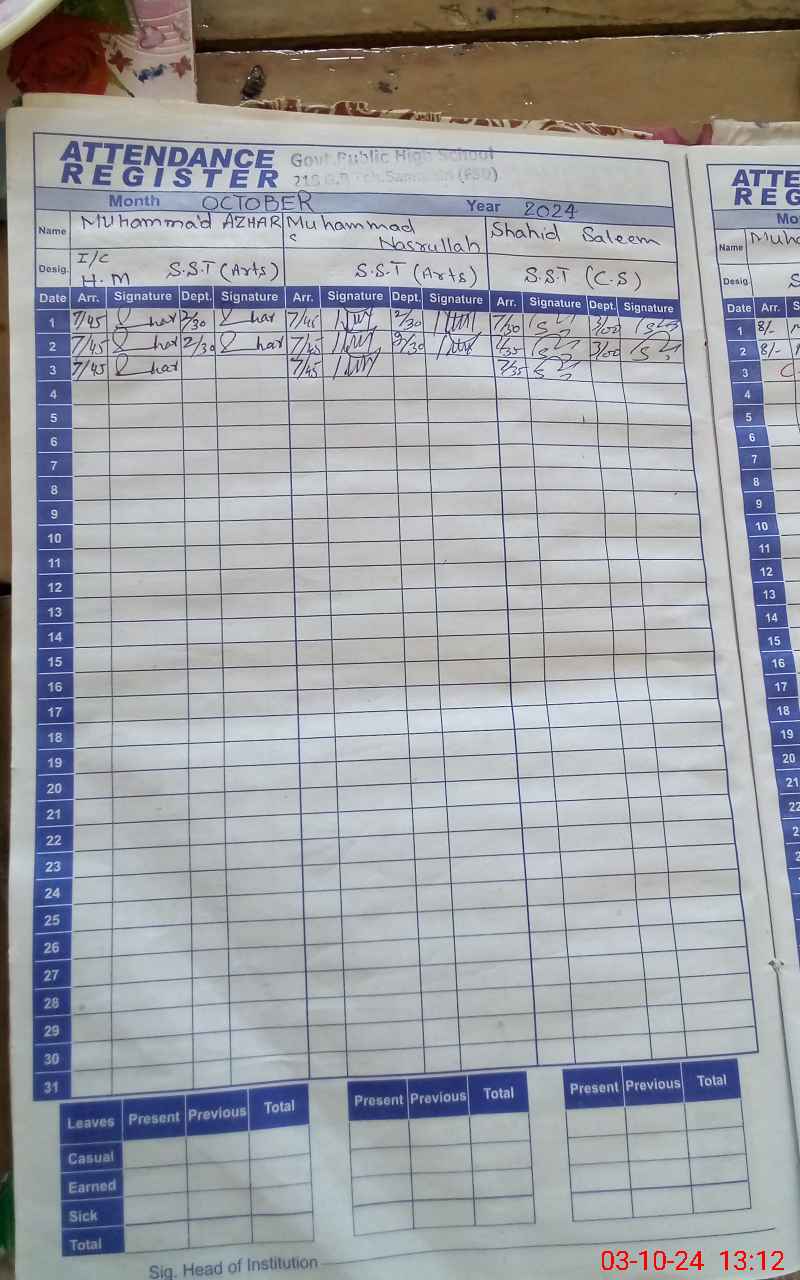 ATTENDANCE REGISTER Govt. Public High School
Month OCTOBER Year 2024
Name Muhammad AZHAR Muhammad Nasrullah Shahid Saleem
Desig. I/C H.M S.S.T (Arts) S.S.T (Arts) S.S.T (C.S)
Date Arr. Signature Dept. Signature Arr. Signature Dept. Signature Arr. Signature Dept. Signature
1 7/45 2/30 7/45 2/30 7/30 3/00
2 7/45 2/30 7/45 2/30 3/00
3 7/45 7/45 7/35
4
5
6
7
8
9
10
11
12
13
14
15
16
17
18
19
20
21
22
23
24
25
26
27
28
29
30
31
Leaves Present Previous Total Present Previous Total Present Previous Total
Casual
Earned
Sick
Total
Sig. Head of Institution
ATTE
RE
Mo
Name Muh
Desig. S
Date Arr. S
1 8/-
2 8/-
3
4
5
6
7
8
9
10
11
12
13
14
15
16
17
18
19
20
21
22
03-10-24 13:12